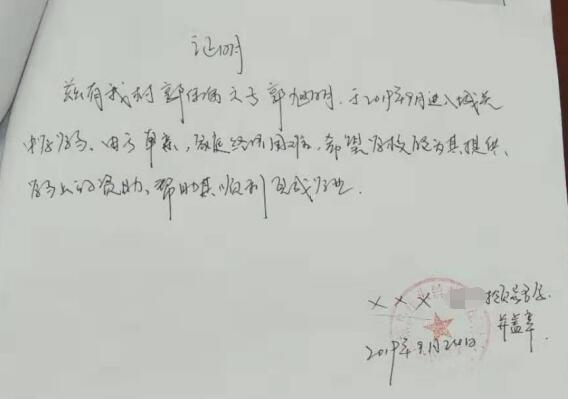 证明
兹有我村郭保福之子郭旭明,于2019年9月进入城关
中学学习。由于单亲,家庭经济困难,希望学校能为其提供
学习上的资助,帮助其顺利完成学业.
××× 签字
并盖章.
2019年9月20日